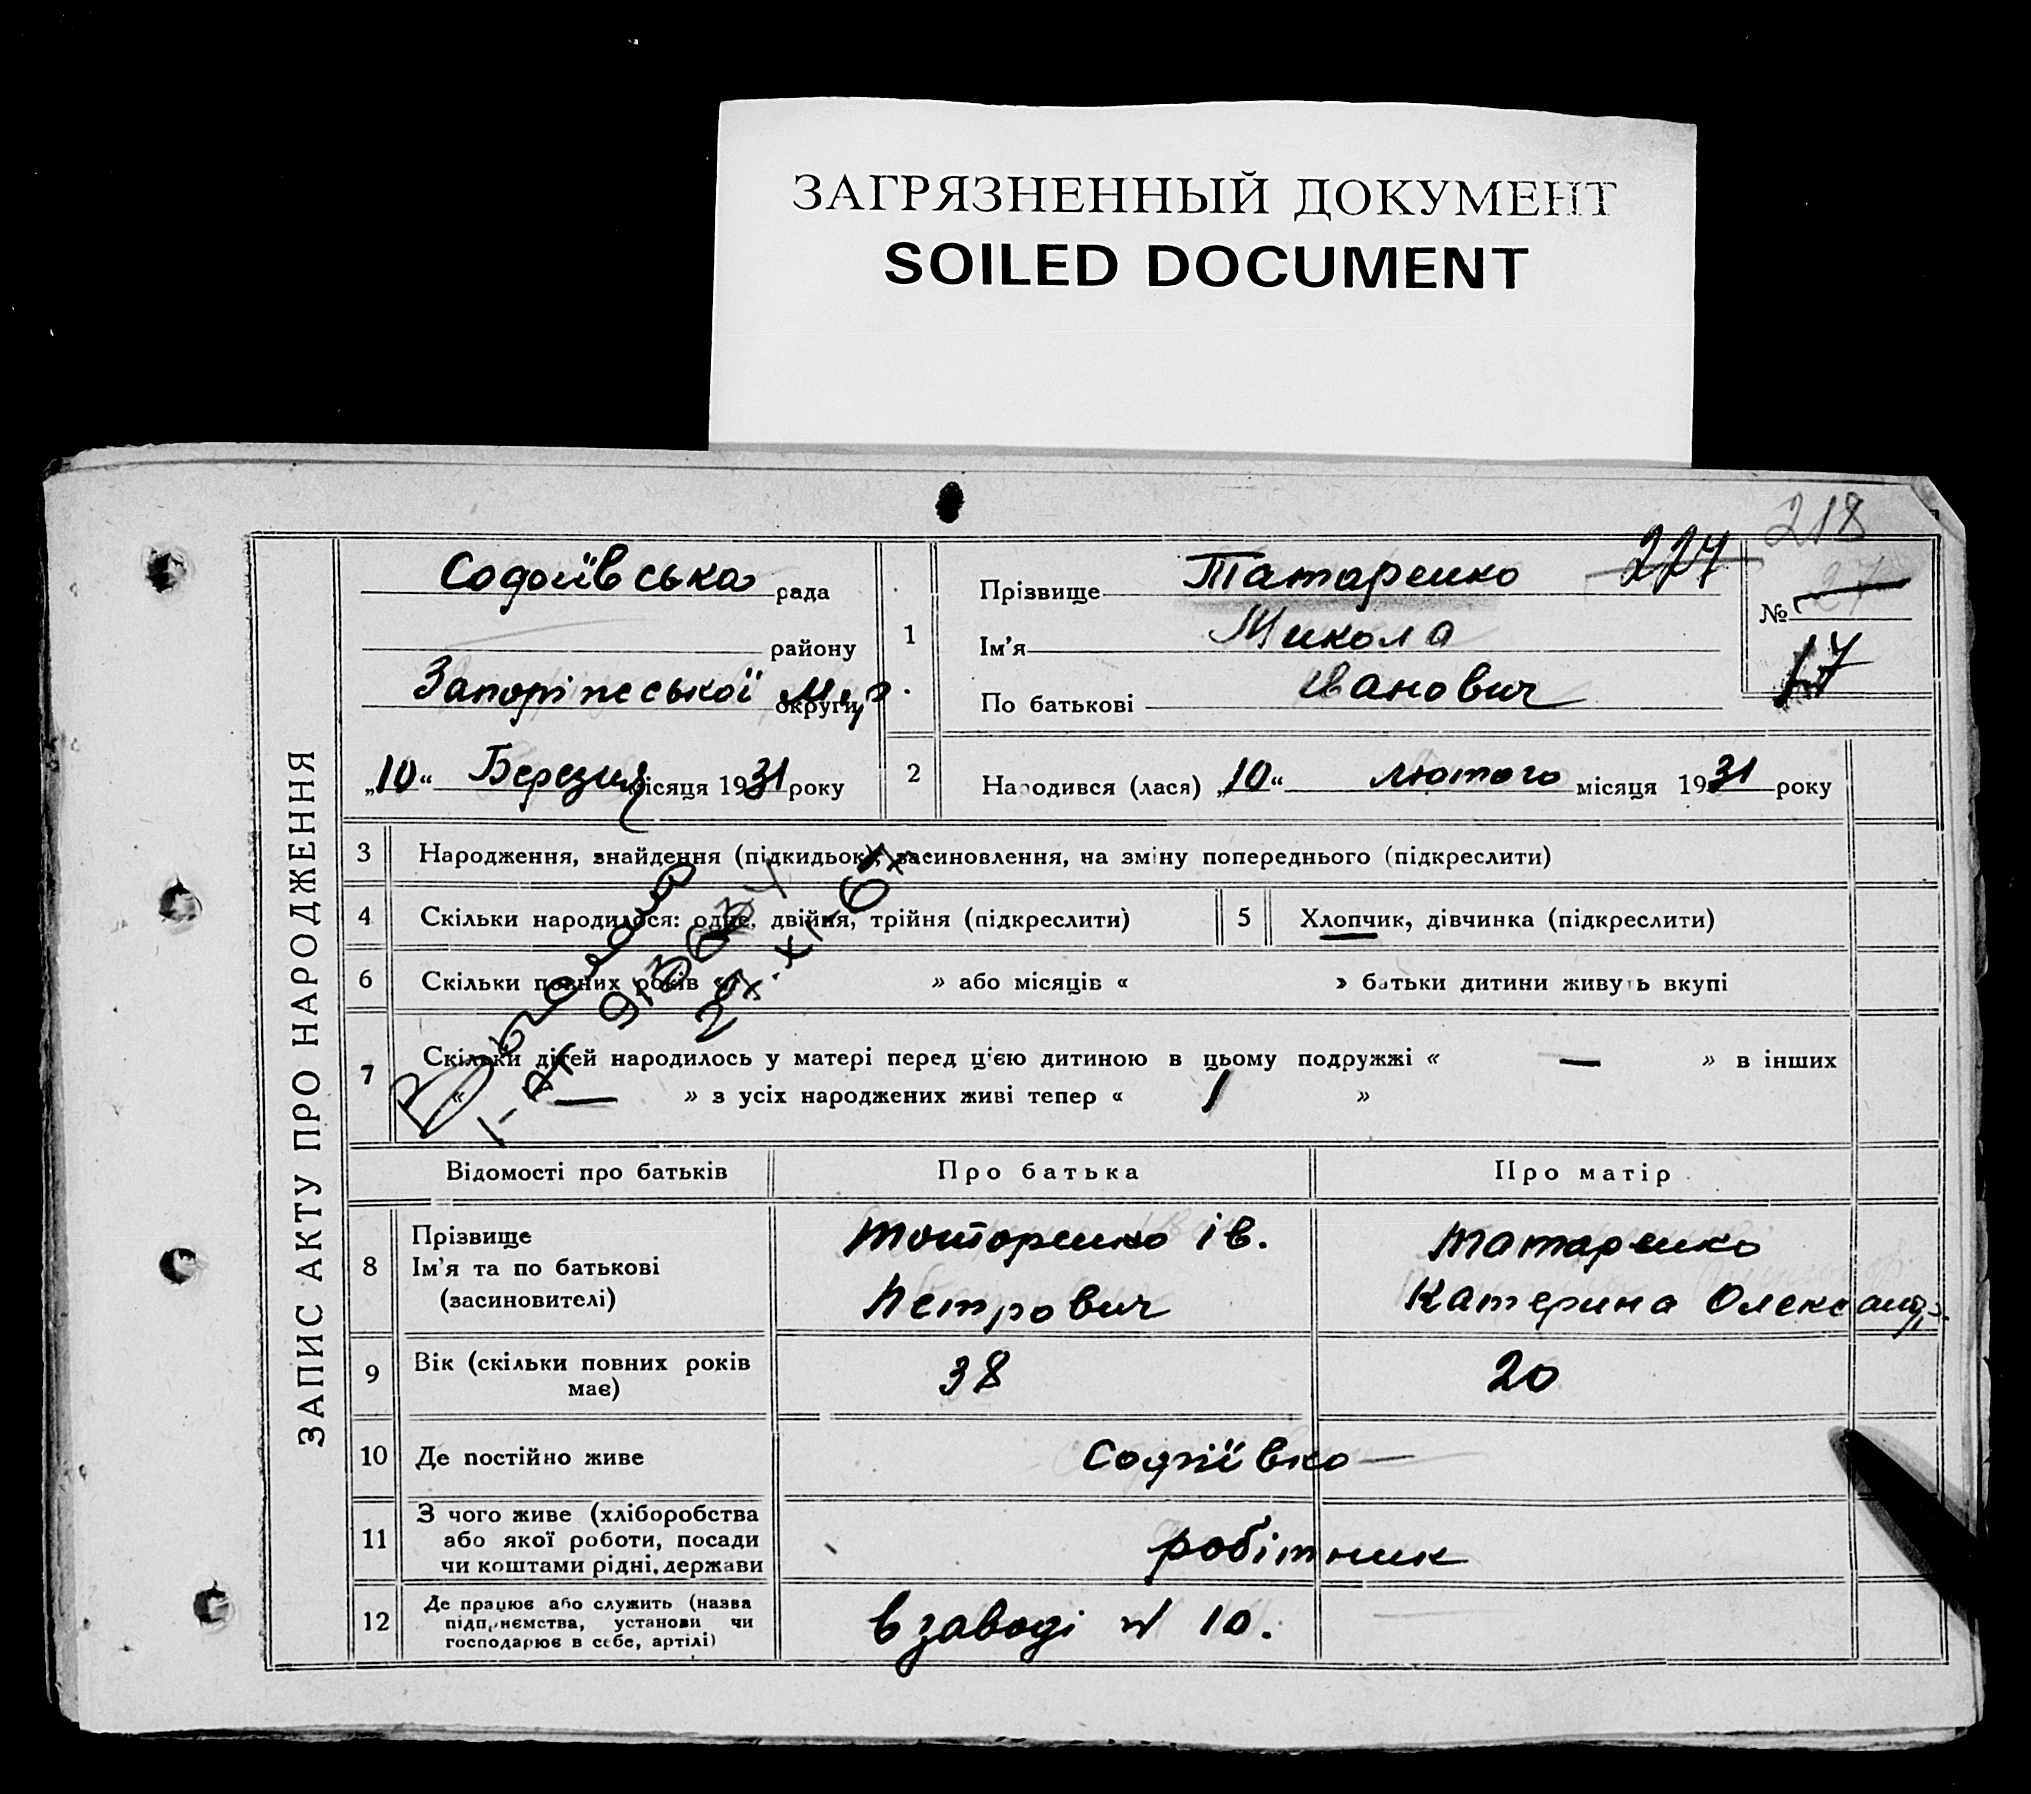 ЗАГРЯЗНЕННЫЙ ДОКУМЕНТ
SOILED DOCUMENT
218
ЗАПИС АКТУ ПРО НАРОДЖЕННЯ
Софіївська рада
району
Запоріжської округи
„10“ Березня місяця 1931 року
1
Прізвище Татаренко 224
Ім'я Микола
По батькові Іванович
№ 27
17
2 Народився (лася) „10“ лютого місяця 1931 року
3 Народження, знайдення (підкидьок), засиновлення, на зміну попереднього (підкреслити)
4 Скільки народилося: одне, двійня, трійня (підкреслити)
5 Хлопчик, дівчинка (підкреслити)
6 Скільки повних років « » або місяців « » батьки дитини живуть вкупі
7 Скільки дітей народилось у матері перед цією дитиною в цьому подружжі « — » в інших
« — » з усіх народжених живі тепер « 1 »
Відомості про батьків Про батька Про матір
8
Прізвище
Ім'я та по батькові
(засиновителі)
Татаренко Ів.
Петрович
Татаренко
Катерина Олександ.
9 Вік (скільки повних років
має)
38 20
10 Де постійно живе Софіївка —
11 З чого живе (хліборобства
або якої роботи, посади
чи коштами рідні, держави
робітник
12 Де працює або служить (назва
підприємства, установи чи
господарює в себе, артілі)
в заводі № 10.